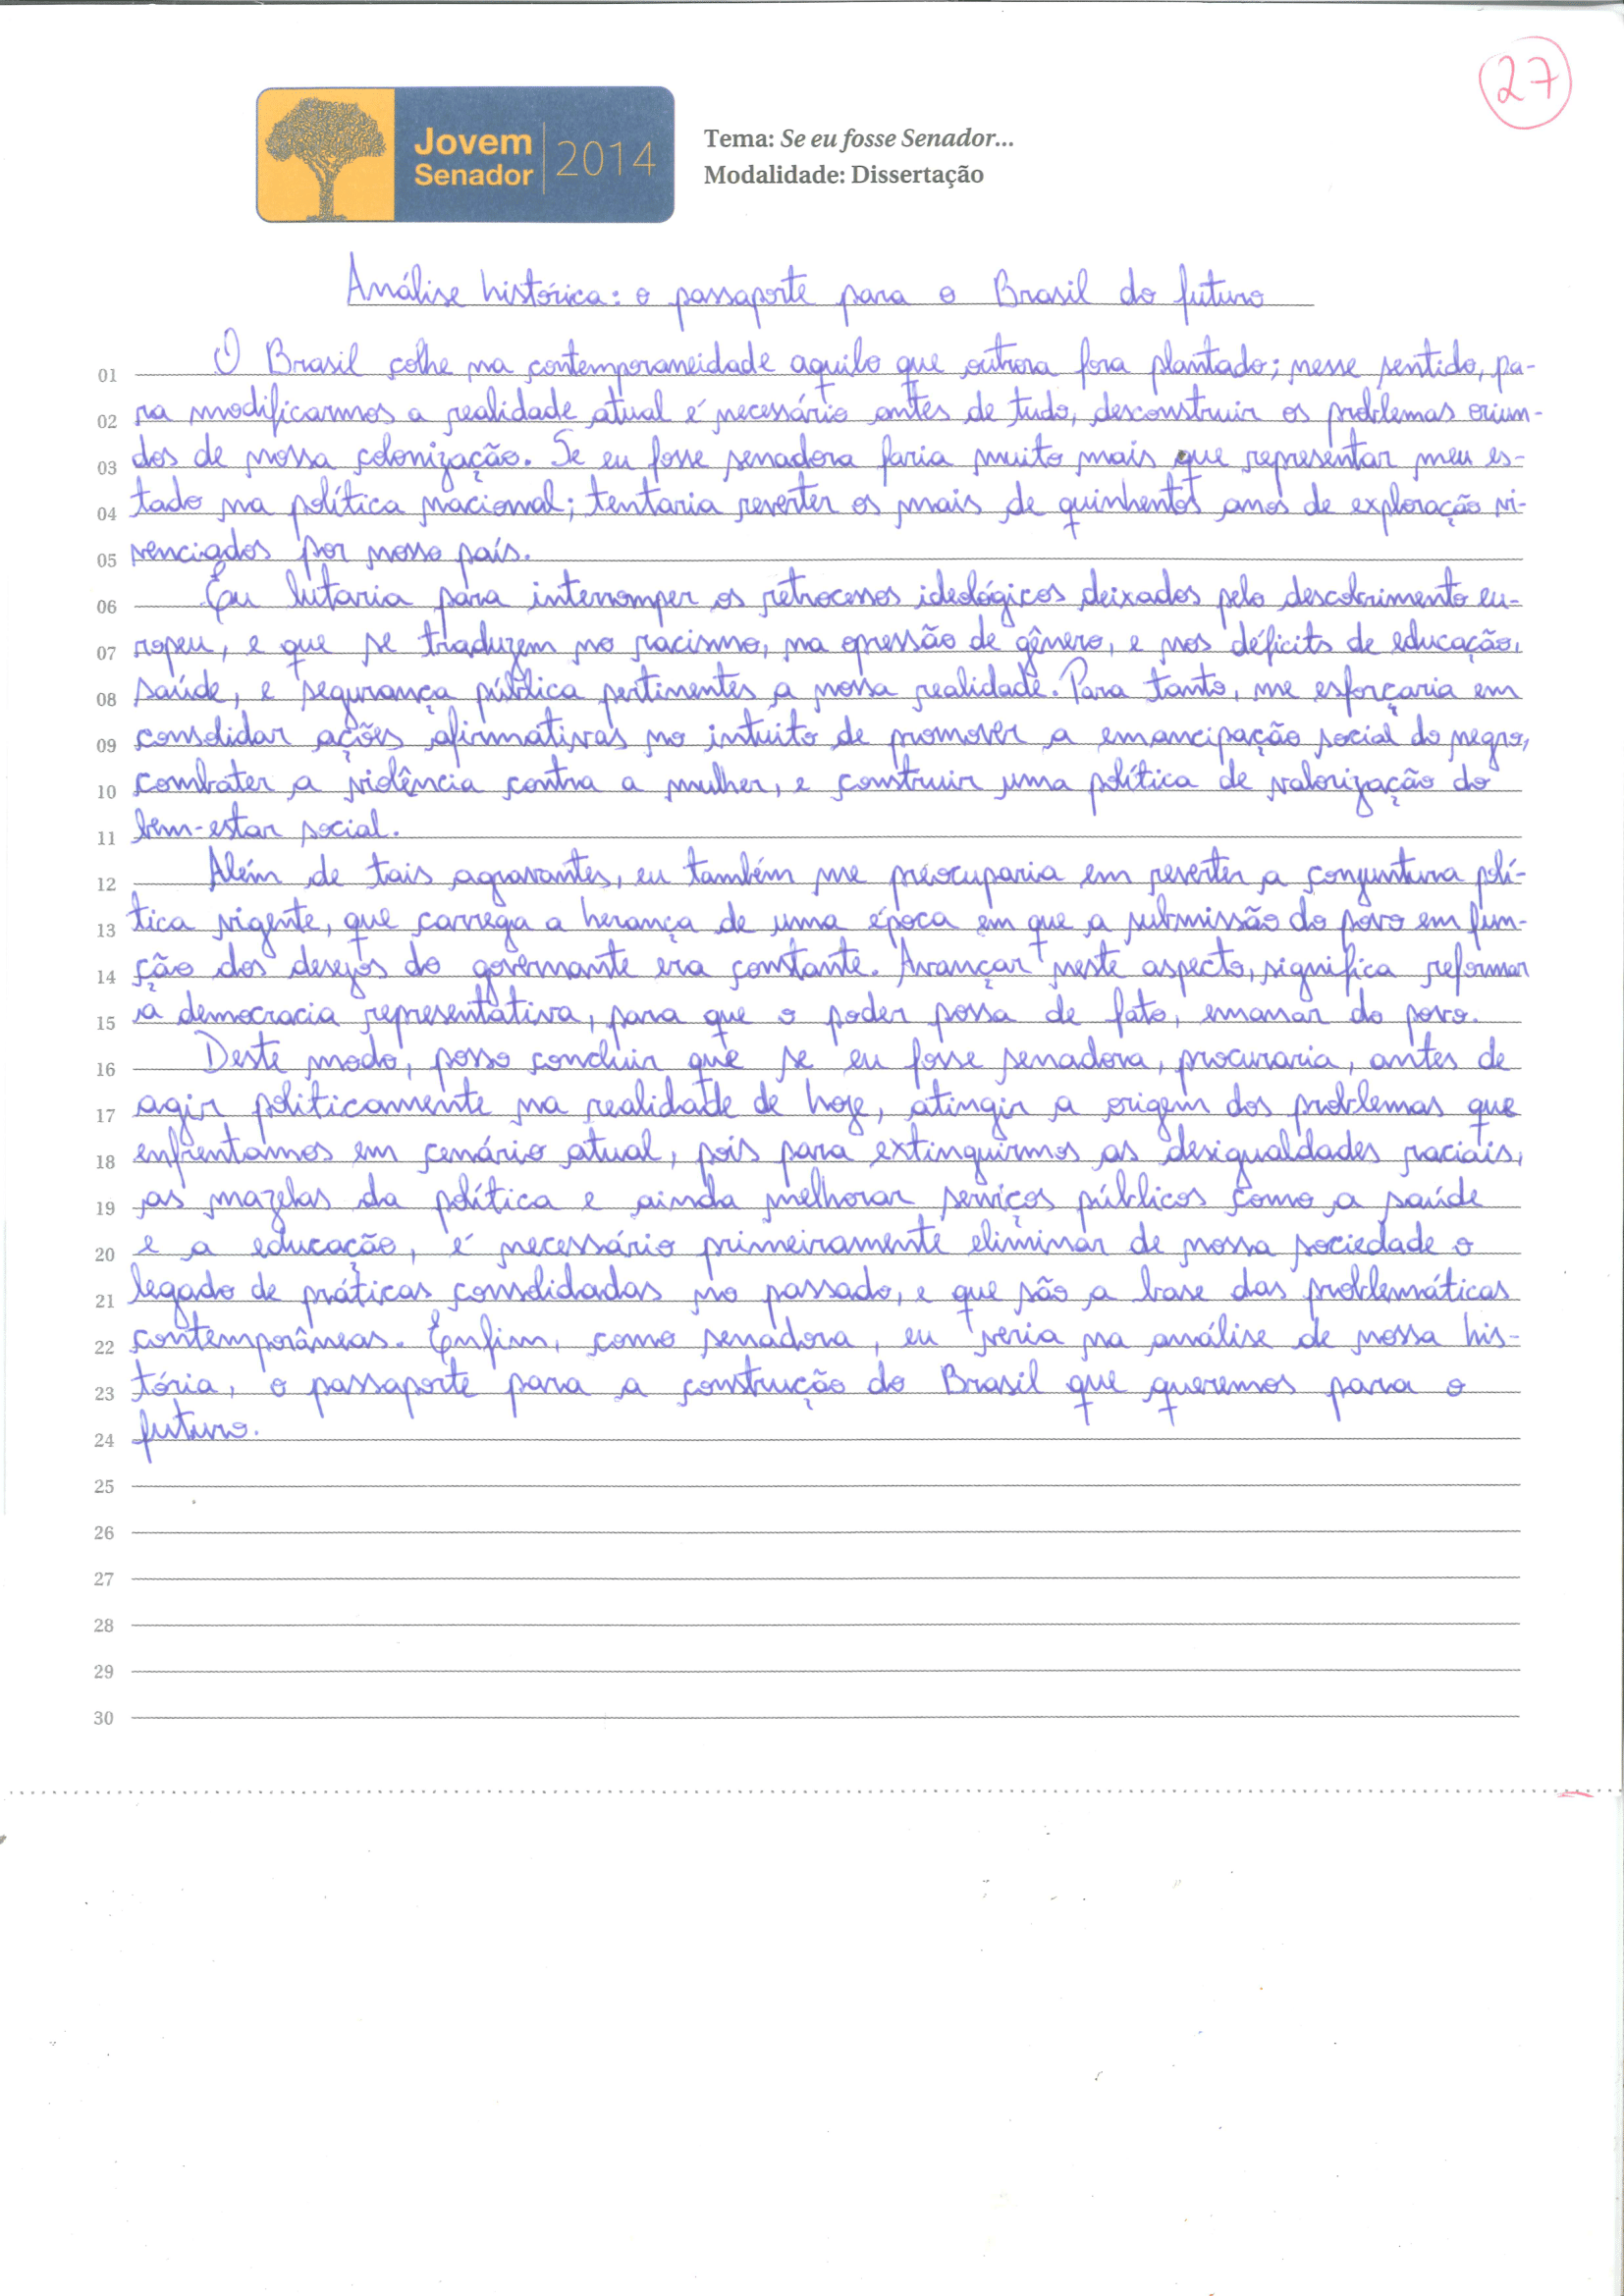 27
Jovem
Senador
2014
Tema: Se eu fosse Senador...
Modalidade: Dissertação
Análise histórica: o passaporte para o Brasil do futuro
01 O Brasil colhe na contemporaneidade aquilo que outrora fora plantado; nesse sentido, pa-
02 ra modificarmos a realidade atual é necessário antes de tudo, desconstruir os problemas oriun-
03 dos de nossa colonização. Se eu fosse senadora faria muito mais que representar meu es-
04 tado na política nacional; tentaria reverter os mais de quinhentos anos de exploração vi-
05 venciados por nosso país.
06 Eu lutaria para interromper os retrocessos ideológicos deixados pelo descobrimento eu-
07 ropeu, e que se traduzem no racismo, na opressão de gênero, e nos déficits de educação,
08 saúde, e segurança pública pertinentes a nossa realidade. Para tanto, me esforçaria em
09 consolidar ações afirmativas no intuito de promover a emancipação social do negro,
10 combater a violência contra a mulher, e construir uma política de valorização do
11 bem-estar social.
12 Além de tais agravantes, eu também me preocuparia em reverter a conjuntura polí-
13 tica vigente, que carrega a herança de uma época em que a submissão do povo em fun-
14 ção dos desejos do governante era constante. Avançar neste aspecto, significa reformar
15 a democracia representativa, para que o poder possa de fato, emanar do povo.
16 Deste modo, posso concluir que se eu fosse senadora, procuraria, antes de
17 agir politicamente na realidade de hoje, atingir a origem dos problemas que
18 enfrentamos em cenário atual, pois para extinguirmos as desigualdades raciais,
19 as mazelas da política e ainda melhorar serviços públicos como a saúde
20 e a educação, é necessário primeiramente eliminar de nossa sociedade o
21 legado de práticas consolidadas no passado, e que são a base das problemáticas
22 contemporâneas. Enfim, como senadora, eu veria na análise de nossa his-
23 tória, o passaporte para a construção do Brasil que queremos para o
24 futuro.
25
26
27
28
29
30